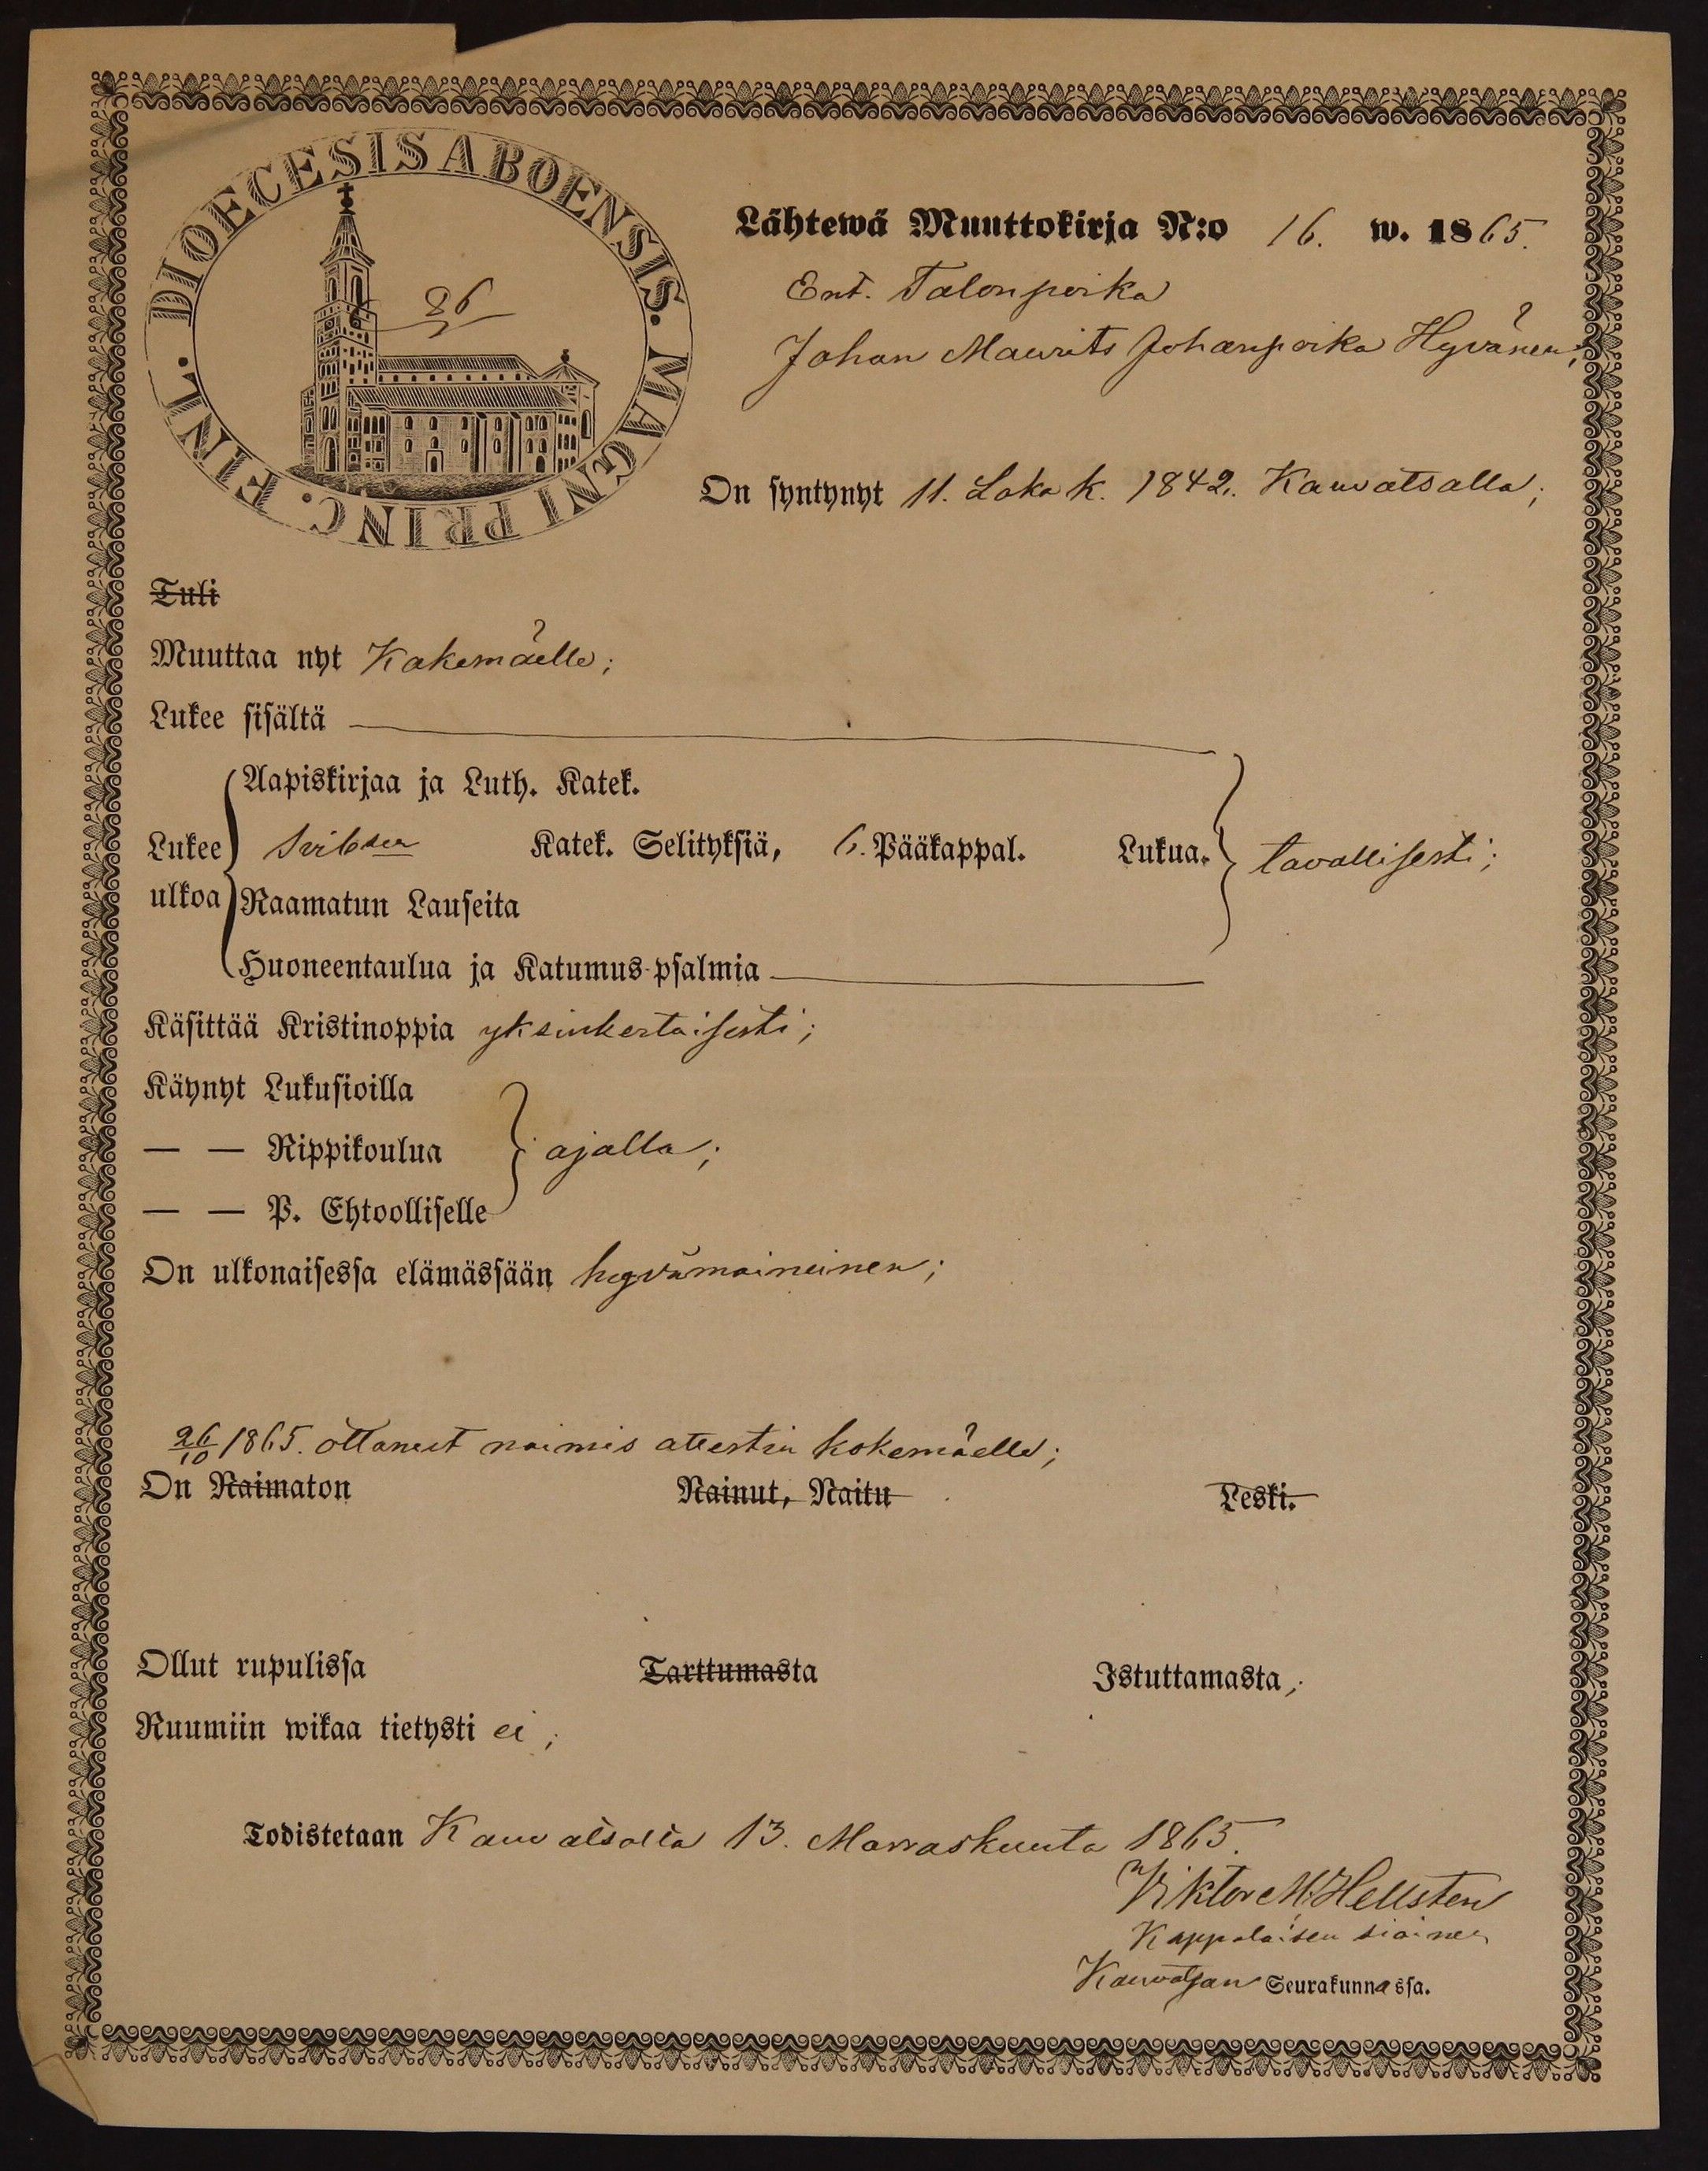 DIOECESIS ABOENSIS. MAGNI PRINC. FINL.
86
Lähtewä Muuttokirja N:o 16. w. 1865.
Ent. Talonpoika
Johan Maurits Johanpoika Hyvänen;
On syntynyt 11. Lokak. 1842. Kauvatsalla;
Tuli
Muuttaa nyt Kokemäelle;
Lukee sisältä
Aapiskirjaa ja Luth. Katek.
Lukee Katek. Selityksiä, 6. Pääkappal. Lukua. tavallisesti;
ulkoa Raamatun Lauseita
Huoneentaulua ja Katumus-psalmia
Käsittää Kristinoppia yksinkertaisesti;
Käynyt Lukusioilla
— — Rippikoulua ajalla;
— — P. Ehtoolliselle
On ulkonaisessa elämässään hyvämaineinen;
26/10 1865. ottanut naimis attestin kokemäelle;
On Naimaton Nainut, Naitu Leski.
Ollut rupulissa Tarttumasta Istuttamasta;
Ruumiin wikaa tietysti ei;
Todistetaan Kauvatsalla 13. Marraskuuta 1865.
Viktor M. Hellsten
Kappalaisen siainen
Kauvatsan Seurakunnassa.